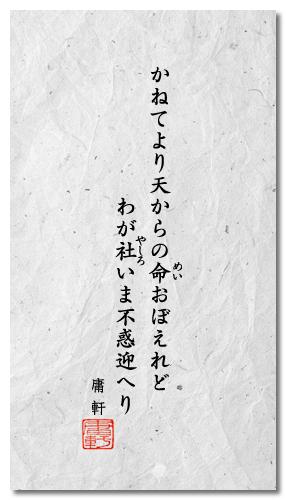 かねてより天からの命おぼえれど
めい
わが社いま不惑迎へり
やしろ
庸軒
庸軒